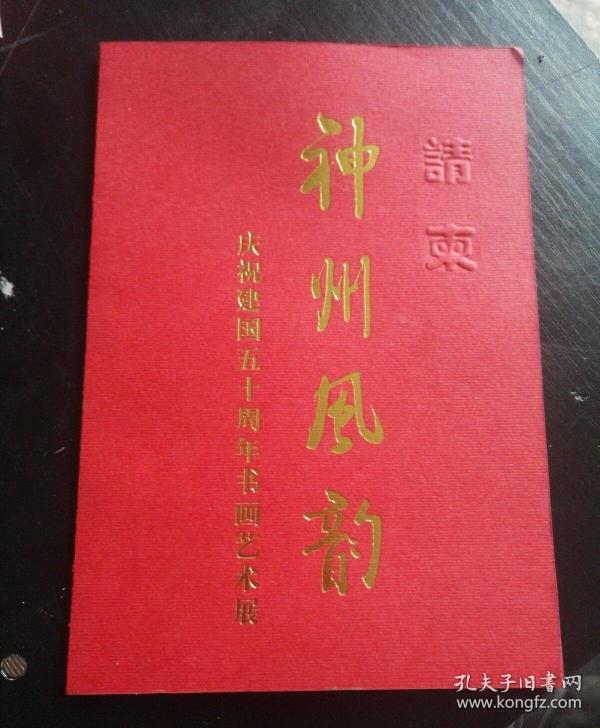 請柬
神州风韵
庆祝建国五十周年书画艺术展
孔夫子旧書网
www.kongfz.com